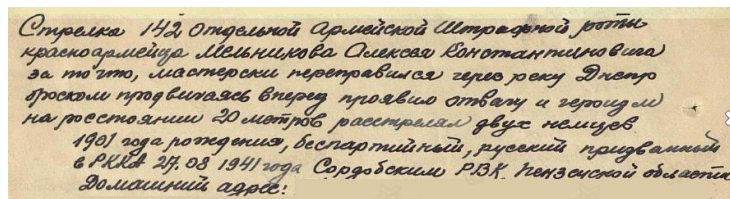 Стрелка 142 Отдельной Армейской Штрафной роты
красноармейца Мельникова Алексея Константиновича
за то что, мастерски переправился через реку Днепр
броском продвигаясь вперед проявил отвагу и героизм
на росстоянии 20 метров расстрелял двух немцев.
1901 года рождения, беспартийный, русский призванный
в РККА 27.08 1941 года Сордобским РВК. Пензенской области
Домашний адрес: